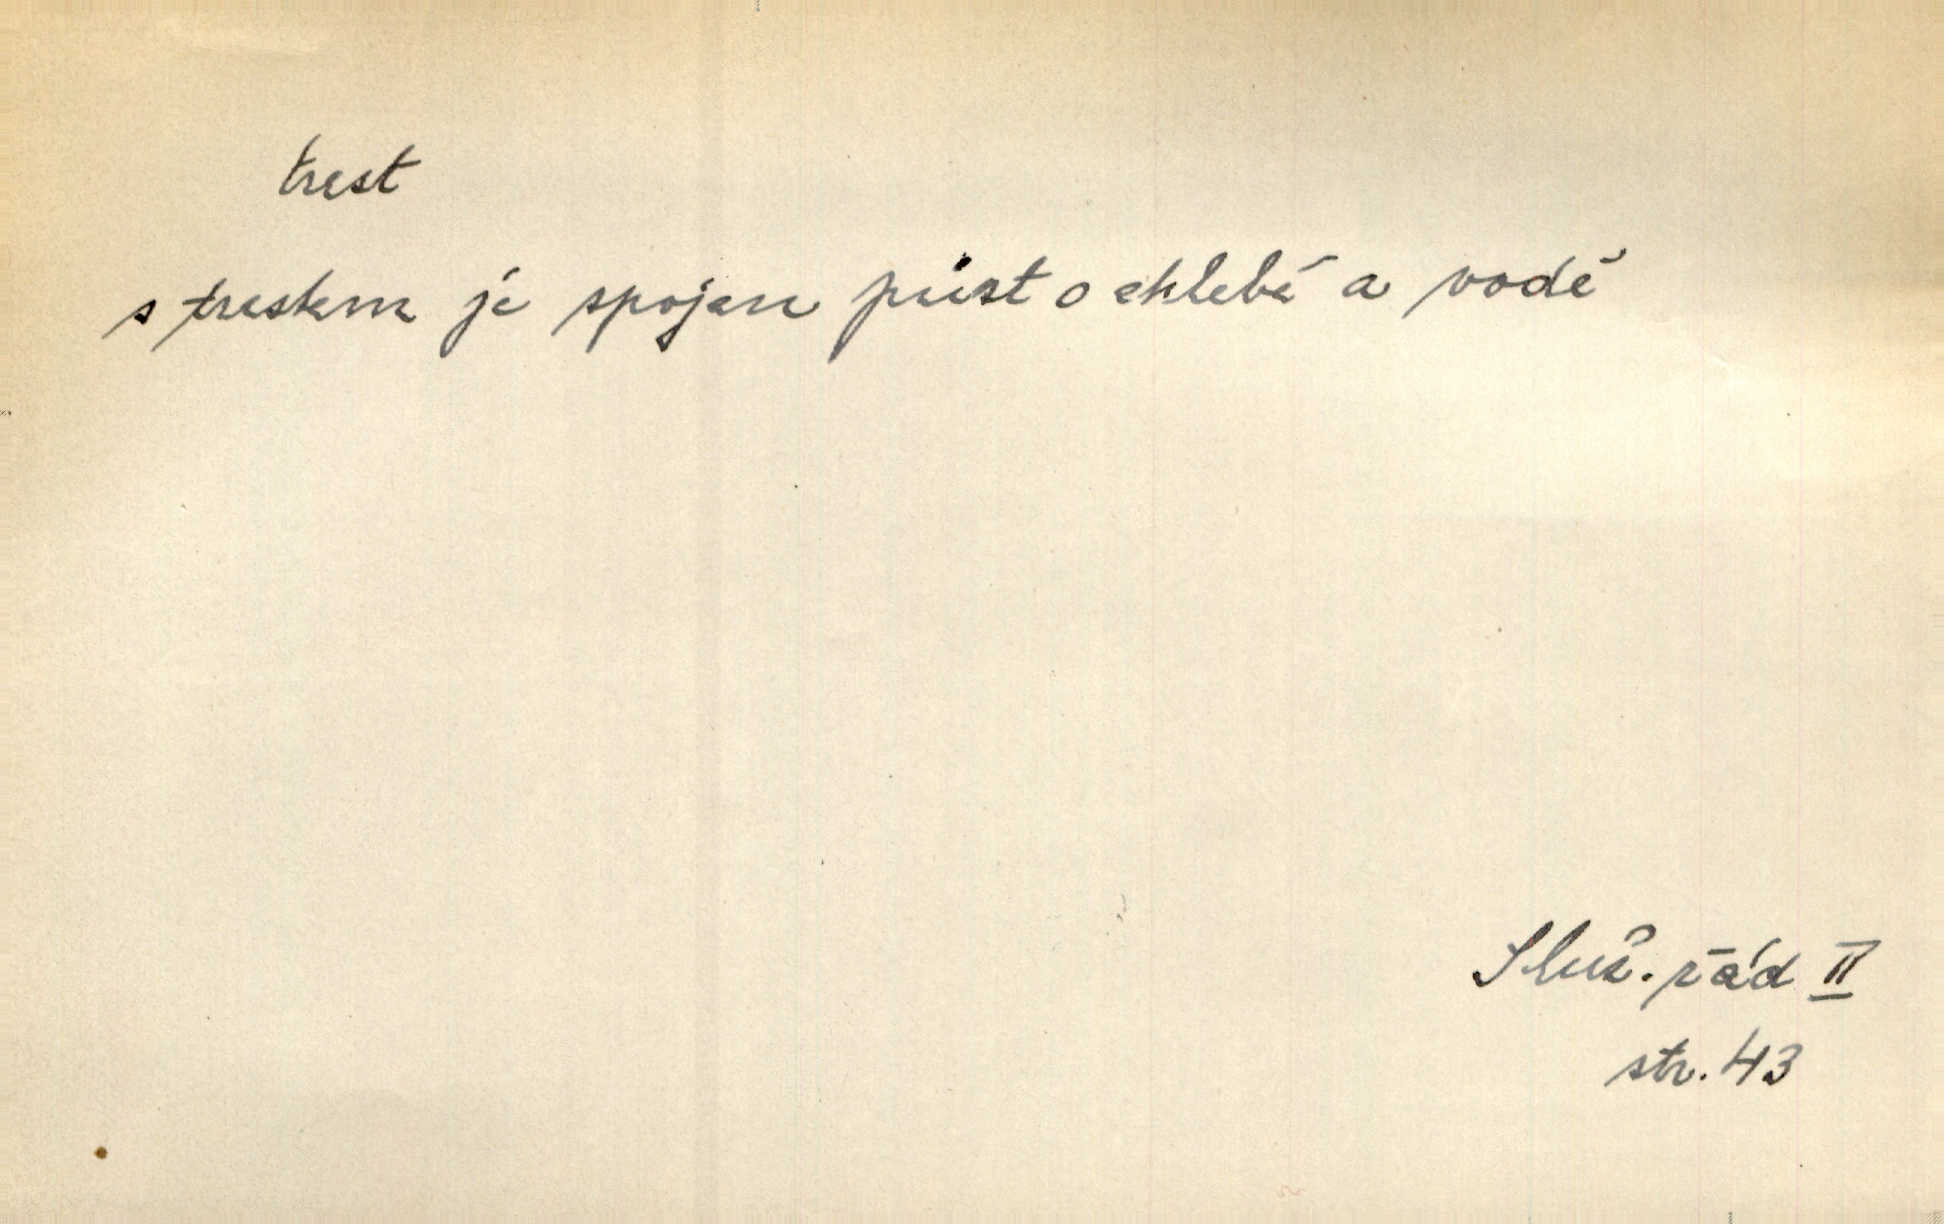 trest
s trestem je spojen půst o chlebě a vodě
Služ. řád II
str. 43